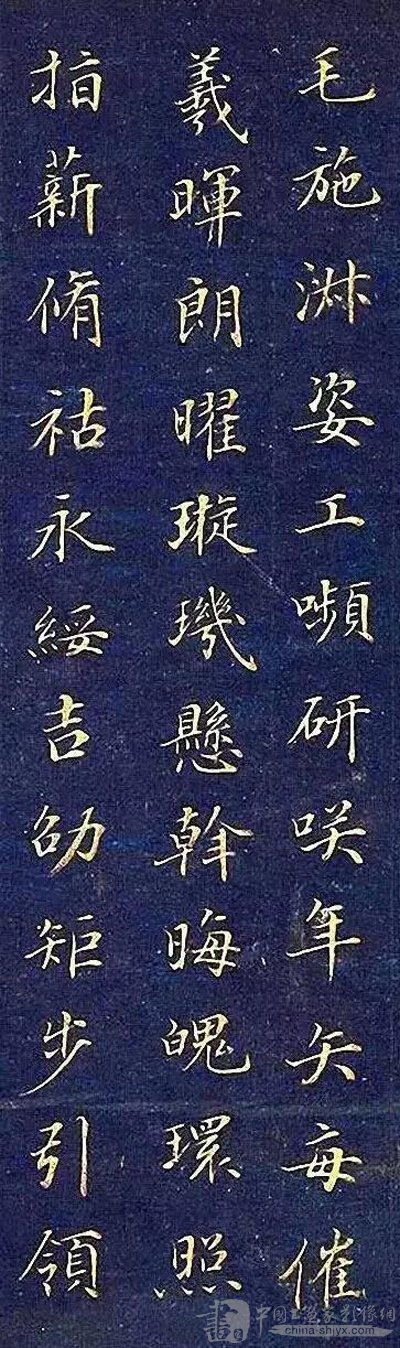 毛施淑姿工嚬研咲年矢每催
羲暉朗曜璇璣懸斡晦魄環照
指薪脩祜永綏吉劭矩步引領
china-shiyx.com